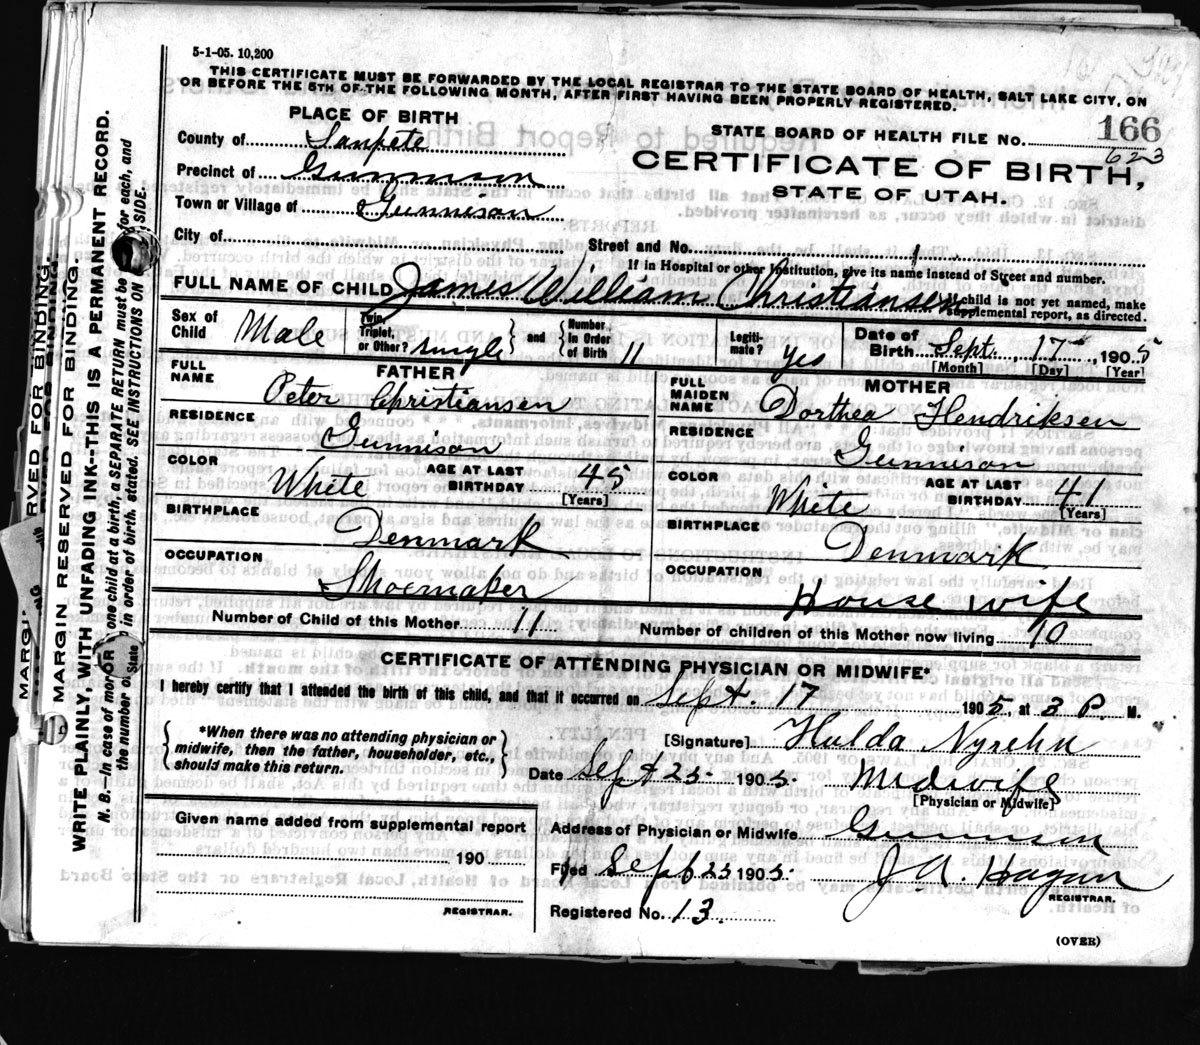 5-1-05. 10,200
THIS CERTIFICATE MUST BE FORWARDED BY THE LOCAL REGISTRAR TO THE STATE BOARD OF HEALTH, SALT LAKE CITY, ON
OR BEFORE THE 5TH OF THE FOLLOWING MONTH, AFTER FIRST HAVING BEEN PROPERLY REGISTERED.
PLACE OF BIRTH
County of Sanpete
Precinct of Gunnison
Town or Village of Gunnison
City of
STATE BOARD OF HEALTH FILE No. 166
623
CERTIFICATE OF BIRTH,
STATE OF UTAH.
Street and No.
If in Hospital or other Institution, give its name instead of Street and number.
FULL NAME OF CHILD James William Christiansen
child is not yet named, make
supplemental report, as directed.
Sex of Child Male
Twin, Triplet, or Other? single and Number in Order of Birth 11
Legiti- mate? yes
Date of Birth Sept. 17, 1905
[Month] [Day] [Year]
FATHER
FULL NAME Peter Christiansen
RESIDENCE Gunnison
COLOR White AGE AT LAST BIRTHDAY 45
[Years]
BIRTHPLACE Denmark
OCCUPATION Shoemaker
MOTHER
FULL MAIDEN NAME Dorthea Hendriksen
RESIDENCE Gunnison
COLOR White AGE AT LAST BIRTHDAY 41
[Years]
BIRTHPLACE Denmark
OCCUPATION House wife
Number of Child of this Mother 11
Number of children of this Mother now living 10
CERTIFICATE OF ATTENDING PHYSICIAN OR MIDWIFE*
I hereby certify that I attended the birth of this child, and that it occurred on Sept. 17 1905, at 3 P. M.
*When there was no attending physician or
midwife, then the father, householder, etc.,
should make this return.
[Signature] Hulda Nyrehn
Date Sept 25 1905. Midwife
[Physician or Midwife]
Given name added from supplemental report
190
REGISTRAR.
Address of Physician or Midwife Gunnison
Filed Sept 25 1905. J A. Hagan
REGISTRAR.
Registered No. 13
(OVER)
MARGIN RESERVED FOR BINDING
WRITE PLAINLY, WITH UNFADING INK--THIS IS A PERMANENT RECORD.
N. B.--In case of more than one child at a birth, a SEPARATE RETURN must be made for each, and
the number of in order of birth, stated. SEE INSTRUCTIONS ON SIDE.
RVED FOR BINDING